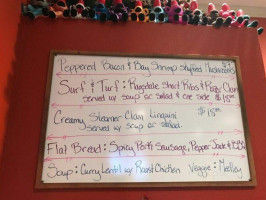 Peppered Bacon & Bay Shrimp Stuffed Mushrooms $9
Surf & Turf: Short Ribs &
served w/ soup or salad & one side $18.00
Creamy Steamer Clam Linguini $15.00
served w/ soup or salad.
Flat Bread: Spicy Pork Sausage, Pepper Jack &
Soup: Curry Lentil w/ Roast Chicken Veggie: Medley